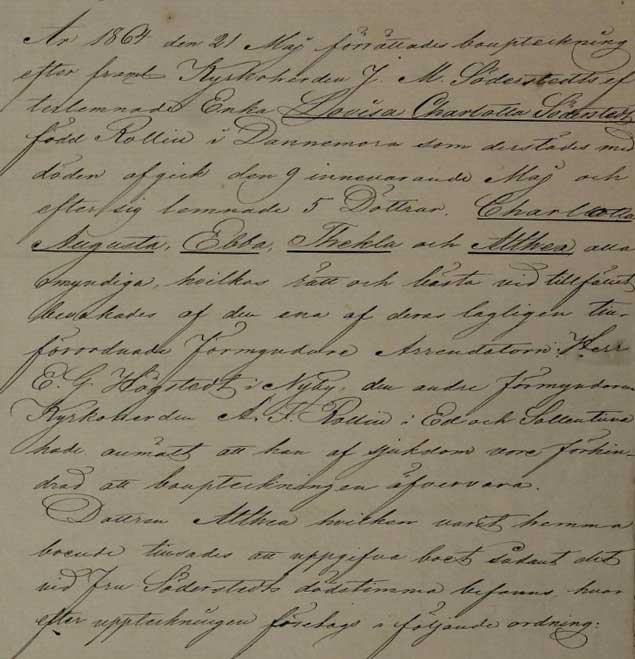 År 1864 den 21 Maj förrättades bouptekning
efter framl. Kyrkoherden J. M. Söderstedts ef
terlemnade Enka Lovisa Charlotta Söderstedt
född Rollin i Dannemora som derstädes med
döden afgick den 9 innevarande Maj och
efter sig lemnade 5 Döttrar. Charlotta
Augusta, Ebba, Thekla och Althea alla
omyndiga, hvilkas rätt och bästa vid tillfället
bevakades af den ena af deras lagligen till-
förordnade Förmyndare Arrendatorn Herr
E. G. Högstedt i Nyby, den andre förmyndaren
Kyrkoherden A. F. Rollin i Ed och Sollentuna
hade anmält att han af sjukdom vore förhin-
drad att bouptekningen öfvervara.
Dottren Althea hvilken varit hemma
boende tillsades att uppgifva boet sådant det
vid Fru Söderstedts dödstimma befanns hvar
efter upptekningen företogs i följande ordning: